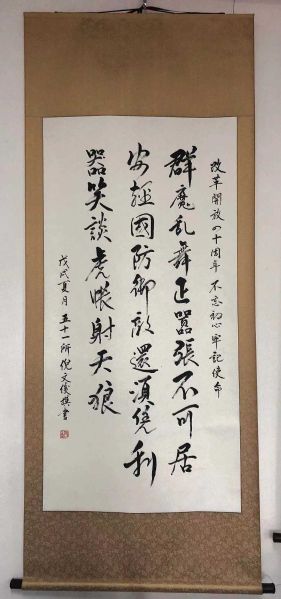 改革開放四十周年 不忘初心牢記使命
群魔乱舞正囂張不可居
安輕國防御敌還須凭利
器笑談虎帳射天狼
戊戌夏月 五十一所倪文俊撰書